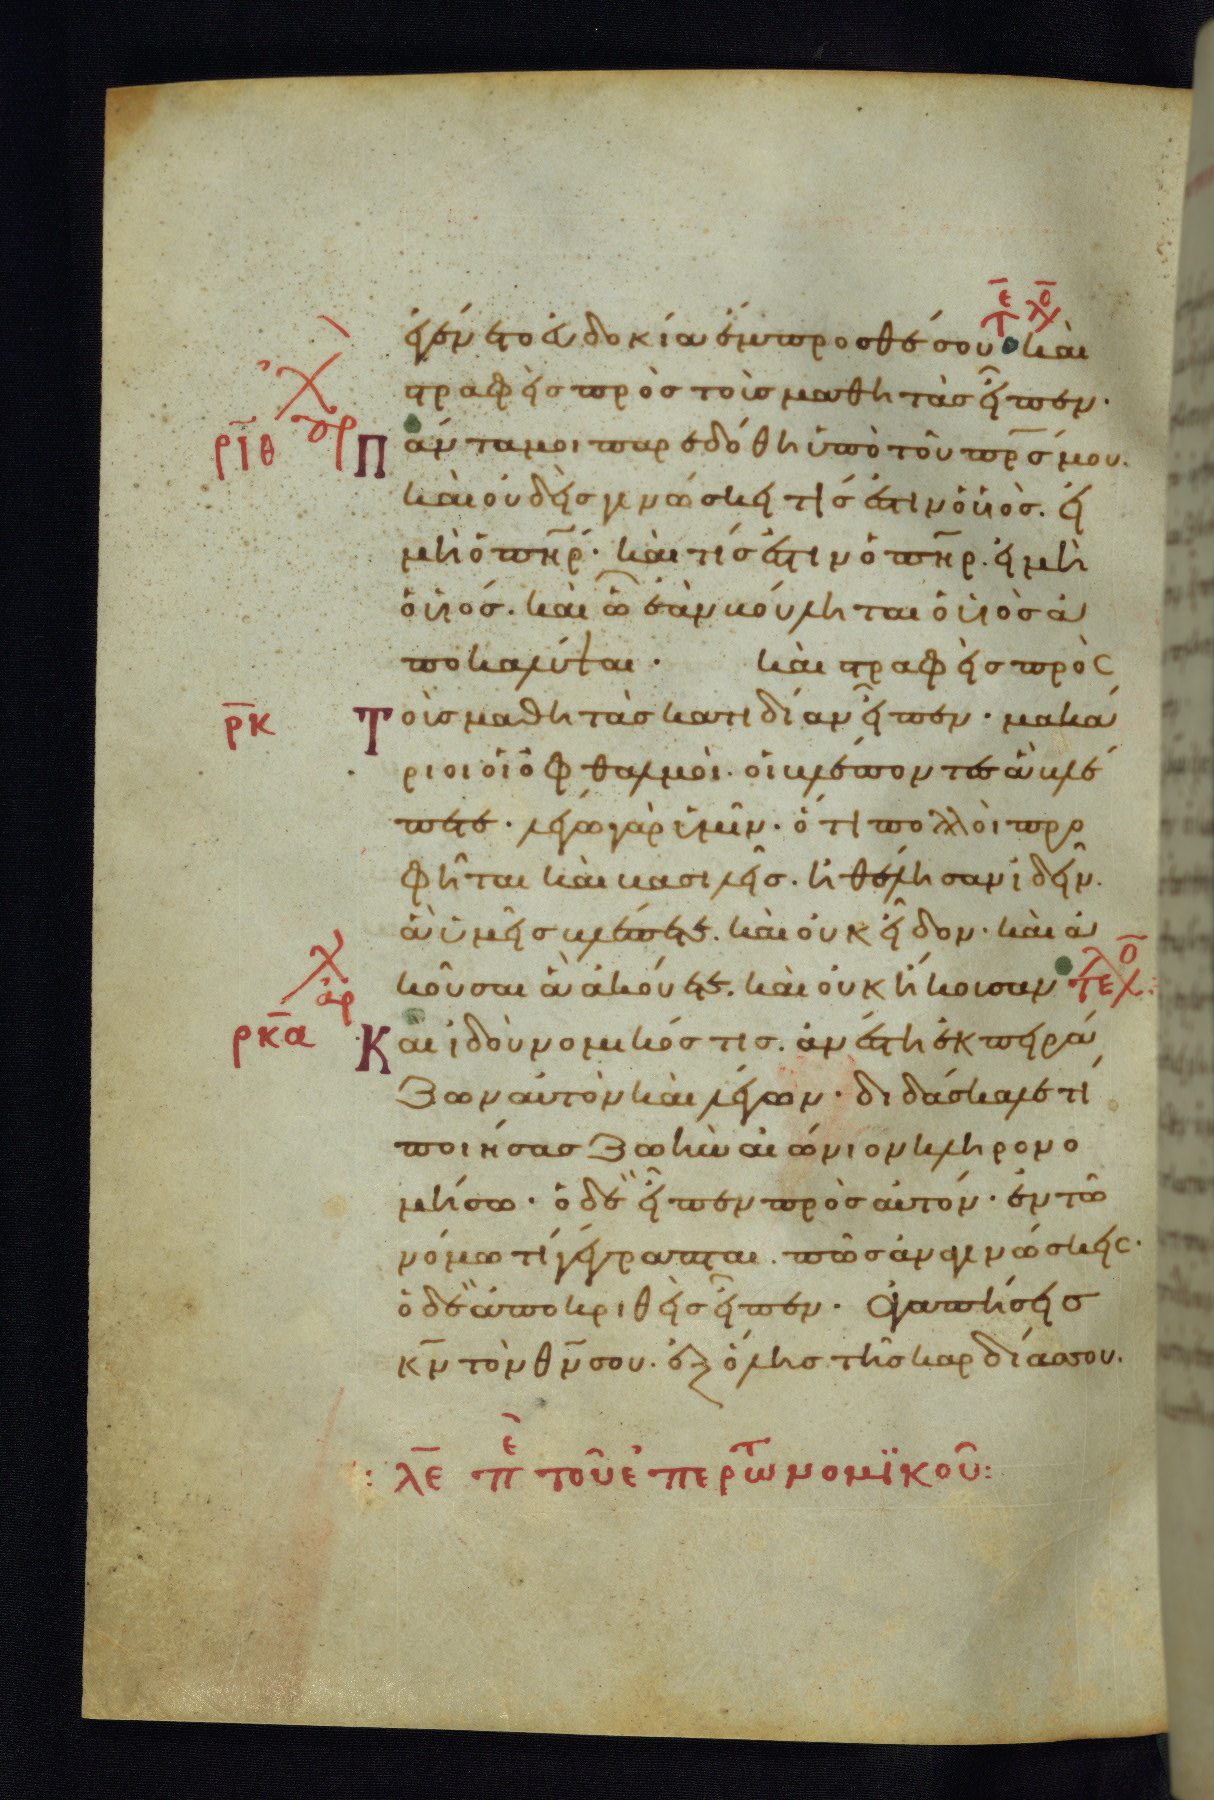 τε λ ο
ἐγένετο εὐδοκία ἔμπροσθέ σου καὶ
στραφεὶς πρὸς τοὺς μαθητὰς εἶπεν·
ρ̅ι̅θ Πάντα μοι παρεδόθη ὑπὸ τοῦ π̅ρ̅ς μου.
καὶ οὐδεὶς γινώσκει τίς ἐστιν ὁ υἱὸς. εἰ
μὴ ὁ π̅η̅ρ· καὶ τίς ἐστιν ὁ π̅η̅ρ. εἰ μὴ
ὁ υἱός. καὶ ὧ ἐὰν βούληται ὁ υἱὸς ἀ
ποκαλύψαι· καὶ στραφεὶς πρὸς
ρ̅κ Τοὺς μαθητὰς κατιδίαν εἶπεν· μακά
ριοι οἱ ὀφθαλμοὶ. οἱ βλέποντες ἃ βλέ
πετε· λέγω γὰρ ὑμῖν· ὅτι πολλοὶ προ
φῆται καὶ βασιλεῖς. ἠθέλησαν ἰδεῖν.
ἃ ὑμεῖς βλέπετε. καὶ οὐκ εἶδον· καὶ ἀ
κοῦσαι ἃ ἀκούετε. καὶ οὐκ ἤκουσαν τελο:
ἀρ
ρκ̅α Καὶ ἰδοὺ νομικός τις. ἀνέστη ἐκπειρά
ζων αὐτὸν καὶ λέγων· διδάσκαλε τί
ποιήσας ζωὴν αἰώνιον κληρονο
μήσω· ὁ δὲ εἶπεν πρὸς αὐτόν· ἐν τῶ
νόμω τί γέγραπται. πῶς ἀναγινώσκεις·
ὁ δὲ ἀποκριθεὶς εἶπεν· Ἀγαπήσεις
κ̅ν τὸν θ̅ν σου. ἐξ ὅλης τῆς καρδίας σου.
: λ̅ε πε τοῦ ἐπερτω νομϊκοῦ: